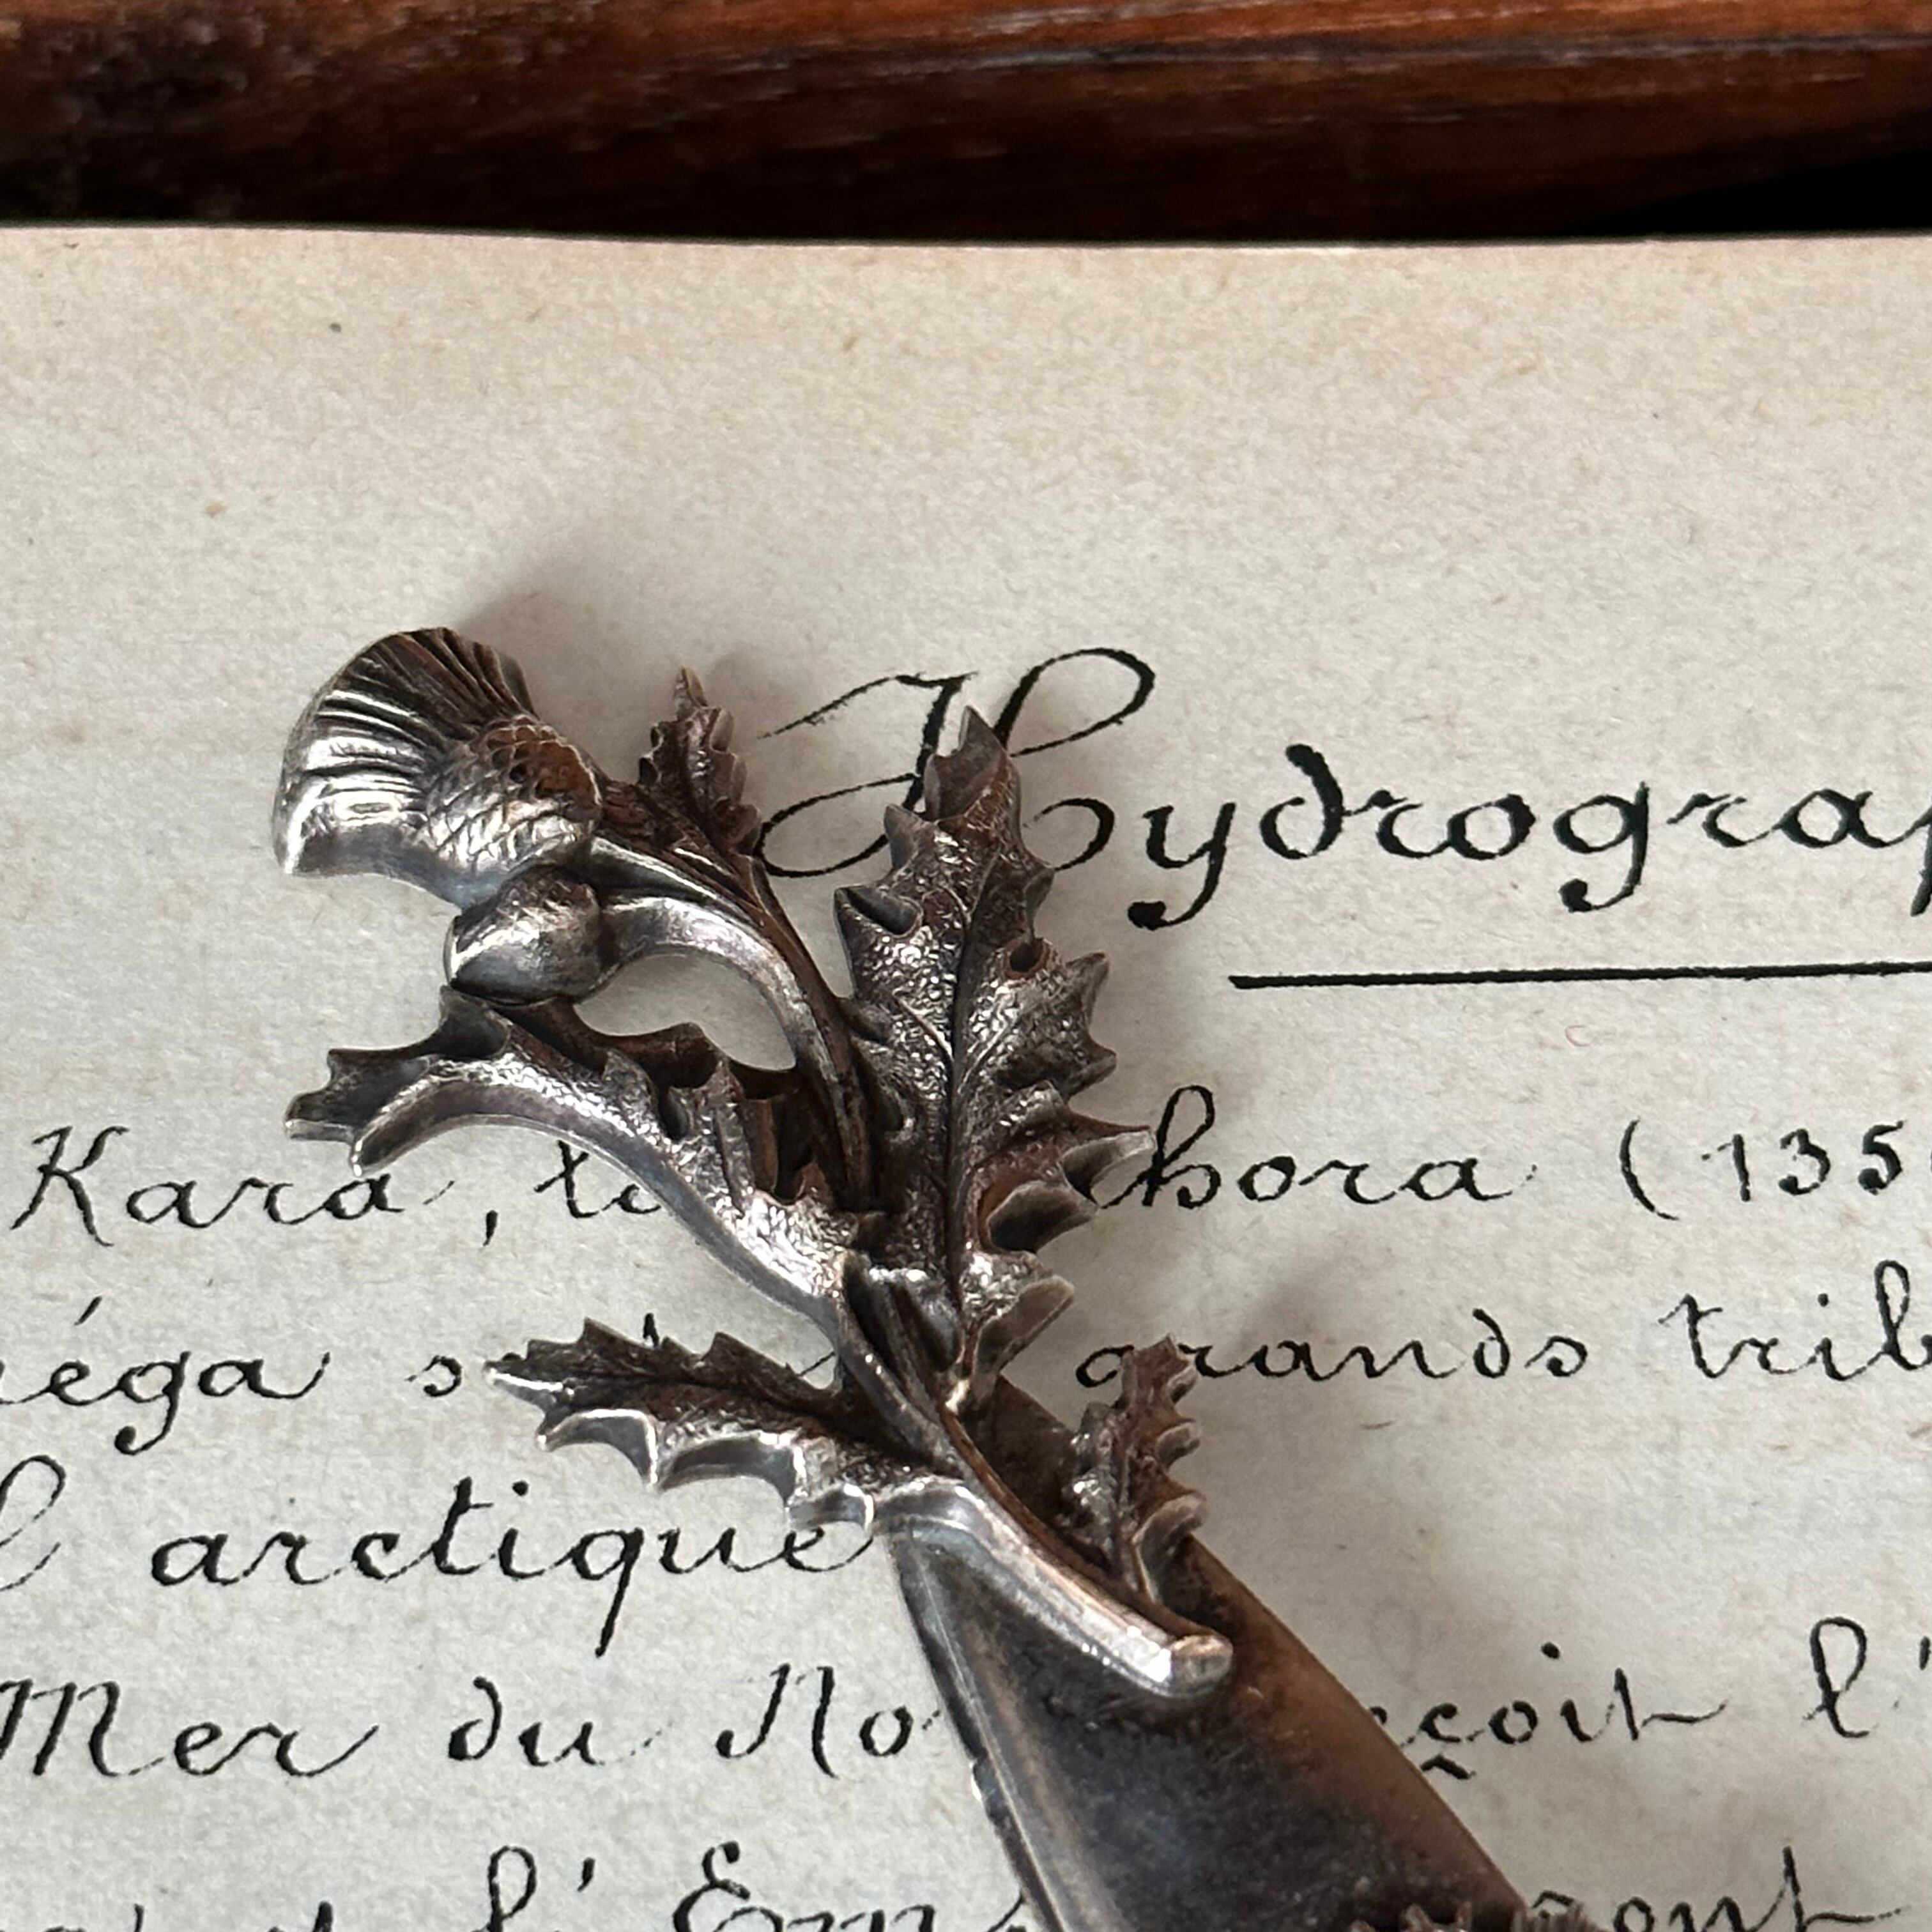 Hydrograp
Kara, la hora (135
éga s grands trib
arctique
Mer du No eçoit l'
l'Em ont